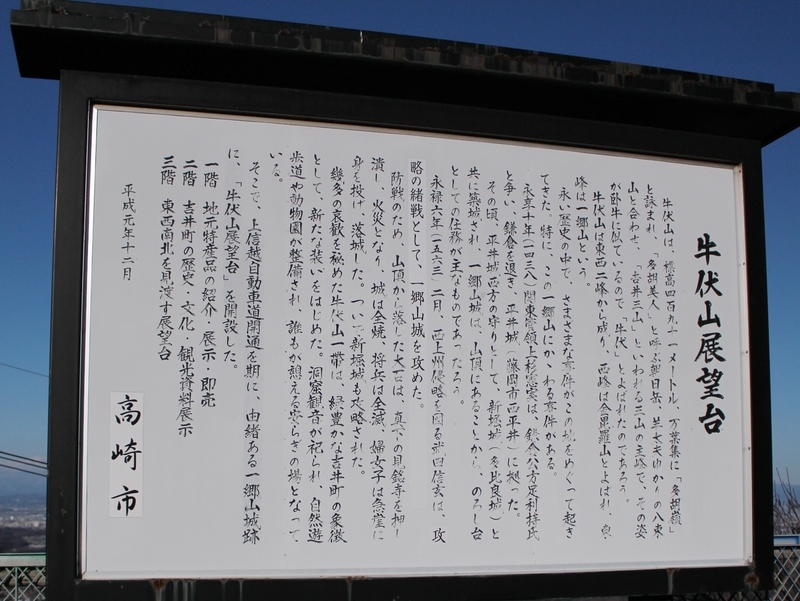 牛伏山展望台
牛伏山は、標高四百九十一メートル、万葉集に「多胡嶺」
と詠まれ、「多胡美人」と呼ぶ朝日岳、羊太夫ゆかりの八束
山と合わせ、「吉井三山」といわれる三山の主峰で、その姿
が臥牛に似ているので「牛伏」とよばれたのであろう。
牛伏山は東西二峰から成り、西峰は金毘羅山とよばれ、東
峰は一郷山という。
永い歴史の中で、さまざまな事件がこの地をめぐって起き
てきた。特に、この一郷山にかゝわる事件がある。
永享十年(一四三八)関東管領上杉憲実は、鎌倉公方足利持氏
と争い、鎌倉を退き、平井城(藤岡市西平井)に拠った。
その頃、平井城西方の守りとして、新堀城(多比良城)と
共に築城され、一郷山城は、山頂にあることから、のろし台
としての任務が主なものであったろう。
永禄六年(一五六三)二月、西上州侵略を図る武田信玄は、攻
略の緒戦として、一郷山城を攻めた。
防戦のため、山頂から落した大石は、真下の見銘寺を押し
潰し、火災となり、城は全焼、将兵は全滅、婦女子は急崖に
身を投げ、落城した。ついで新堀城も攻略された。
幾多の哀歓を秘めた牛伏山一帯は、緑豊かな吉井町の象徴
として、新たな装いをはじめた。洞窟観音が祀られ、自然遊
歩道や動物園が整備され、誰もが憩える安らぎの場となって
いる。
そこで、上信越自動車道開通を期に、由緒ある一郷山城跡
に、「牛伏山展望台」を開設した。
一階 地元特産品の紹介・展示・即売
二階 吉井町の歴史・文化・観光資料展示
三階 東西南北を見渡す展望台
平成元年十二月
高崎市